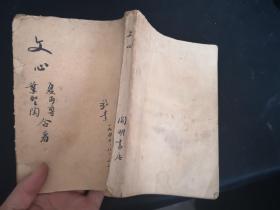 文心
夏丏尊
葉聖陶
合著
文心
開明書店